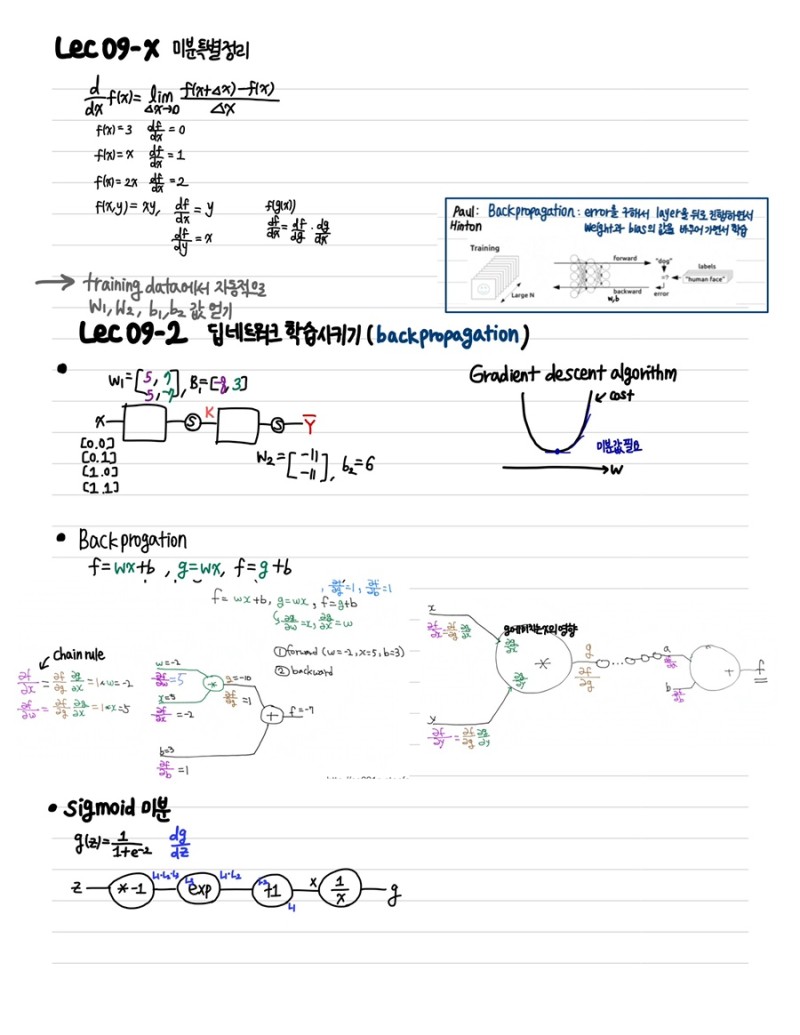 Lec 09-x 미분특별정리
d/dx f(x) = lim Δx→0 f(x+Δx)-f(x) / Δx
f(x)=3 df/dx = 0
f(x)=x df/dx = 1
f(x)=2x df/dx = 2
f(x,y)=xy, df/dx = y
df/dy = x
f(g(x))
df/dx = df/dg · dg/dx
Paul: Backpropagation: error을 구해서 layer을 뒤로 진행하면서
Hinton weight과 bias의 값을 바꾸어 가면서 학습
Training
Large N
forward
"dog"
=?
labels
"human face"
backward
error
w,b
→ training data에서 자동적으로
W₁, W₂, b₁, b₂ 값 얻기
Lec 09-2 딥네트워크 학습시키기 (backpropagation)
W₁=[5, 7
5, -7], B₁=[-8, 3]
X S K S Y̅
[0.0]
[0.1]
[1.0]
[1.1]
W₂=[-11
-11], b₂=6
Gradient descent algorithm
cost
미분값 필요
W
• Back progation
f=wx+b, g=wx, f=g+b
, ∂f/∂g=1, ∂f/∂b=1
f= wx+b, g=wx, f=g+b
∂g/∂w=x, ∂g/∂x=w
① forward (w=-2, x=5, b=3)
② backward
chain rule
∂f/∂x = ∂f/∂g ∂g/∂x = 1*w=-2
∂f/∂w = ∂f/∂g ∂g/∂x = 1*x=5
w=-2
∂f/∂w=5
x=5
∂f/∂x=-2
*
g=-10
∂f/∂g=1
+
f=-7
b=3
∂f/∂b=1
x
∂f/∂x=∂f/∂g ∂g/∂x
g에 미치는 x의 영향
∂g/∂x
*
∂g/∂y
g
∂f/∂g
a
b
+
f
y
∂f/∂y=∂f/∂g ∂g/∂y
• sigmoid 미분
g(z)=1/1+e⁻² dg/dz
z *-1 exp +1 x 1/x g